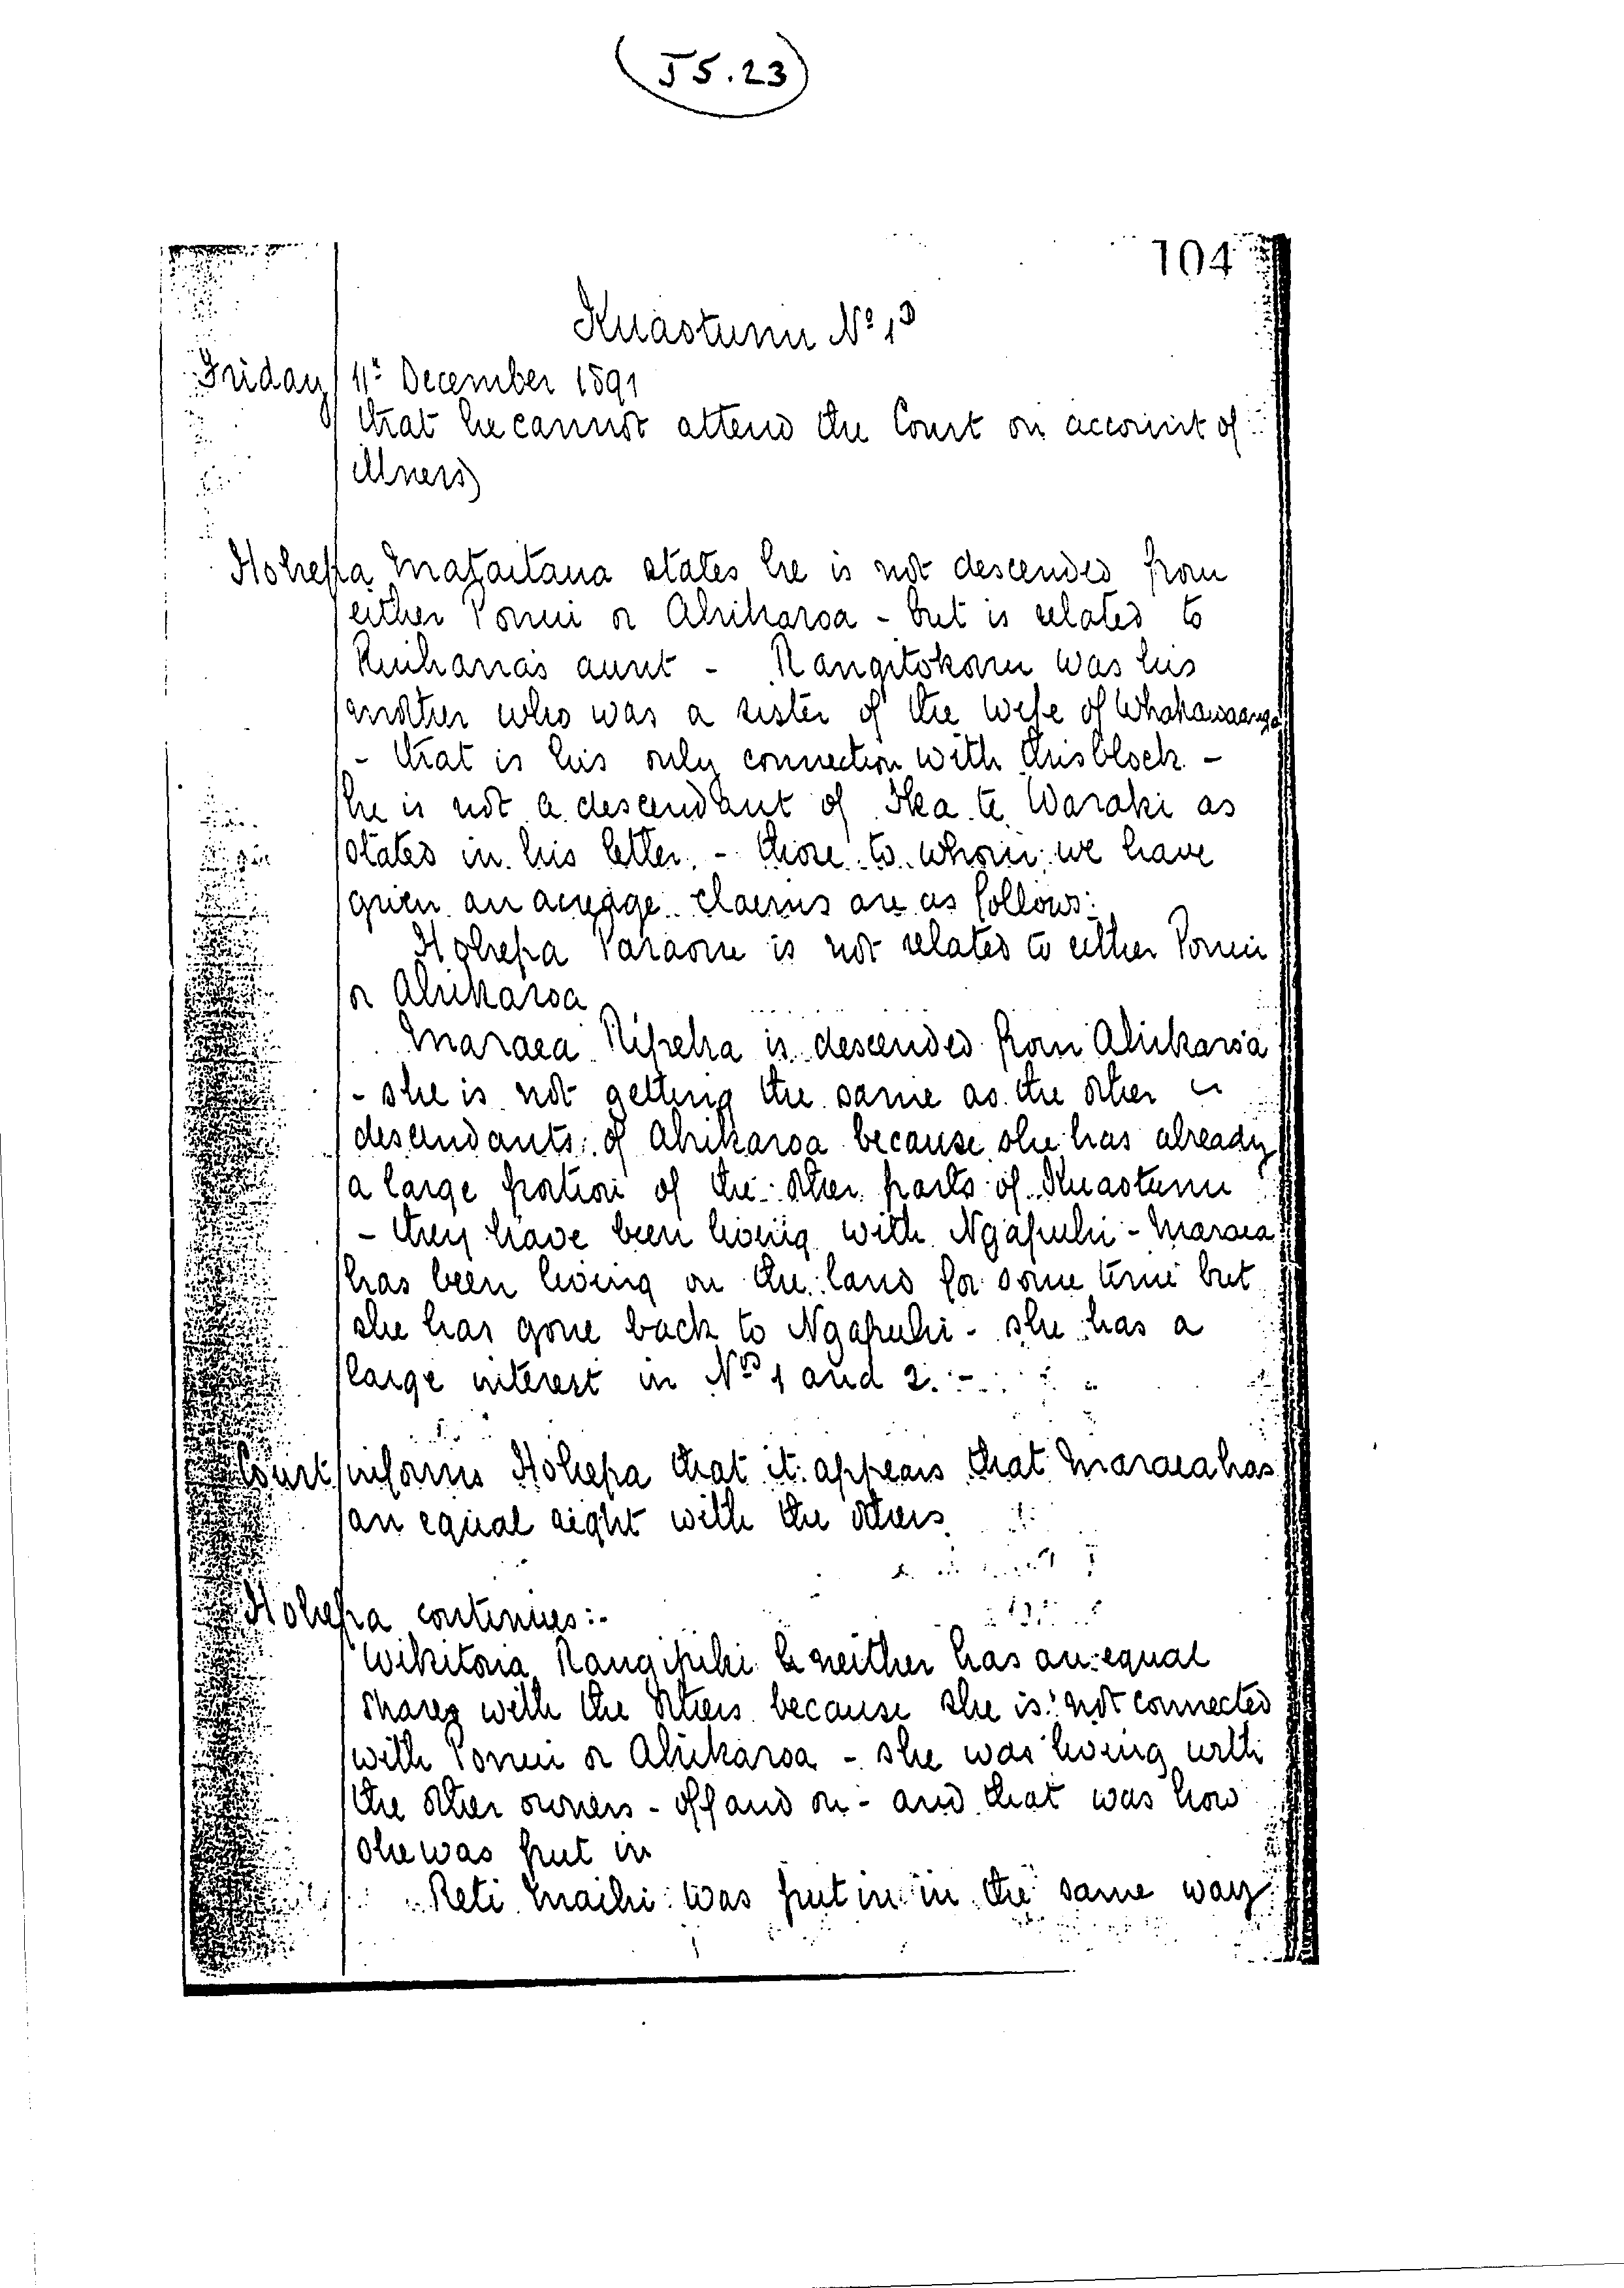 J5.23
104
Kuaotunu No 1D
Friday 11th December 1891
that he cannot attend the Court on account of
illness
Hohepa Mataitaua states he is not descended from
either Pomui or Ahikaroa - but is related to
Ruihana's aunt - Rangitokoru was his
mother who was a sister of the wife of Whakawaanga
- that is his only connection with this block -
he is not a descendant of Ika te Waraki as
stated in his letter. - those to whom we have
given an acreage claims are as follows:
Hohepa Paraone is not related to either Pomui
or Ahikaroa
Maraea Ripeka is descended from Ahikaroa
- she is not getting the same as the other
descendants of Ahikaroa because she has already
a large portion of the other parts of Kuaotunu
- they have been living with Ngapuhi - Maraea
has been living on the land for some time but
she has gone back to Ngapuhi - she has a
large interest in Nos 1 and 2. -
Court informs Hohepa that it appears that Maraea has
an equal right with the others
Hohepa continues:-
Wikitoria Rangipiki neither has an equal
share with the others because she is not connected
with Pomui or Ahikaroa - she was living with
the other owners - off and on - and that was how
she was put in
Reti Maihi was put in in the same way